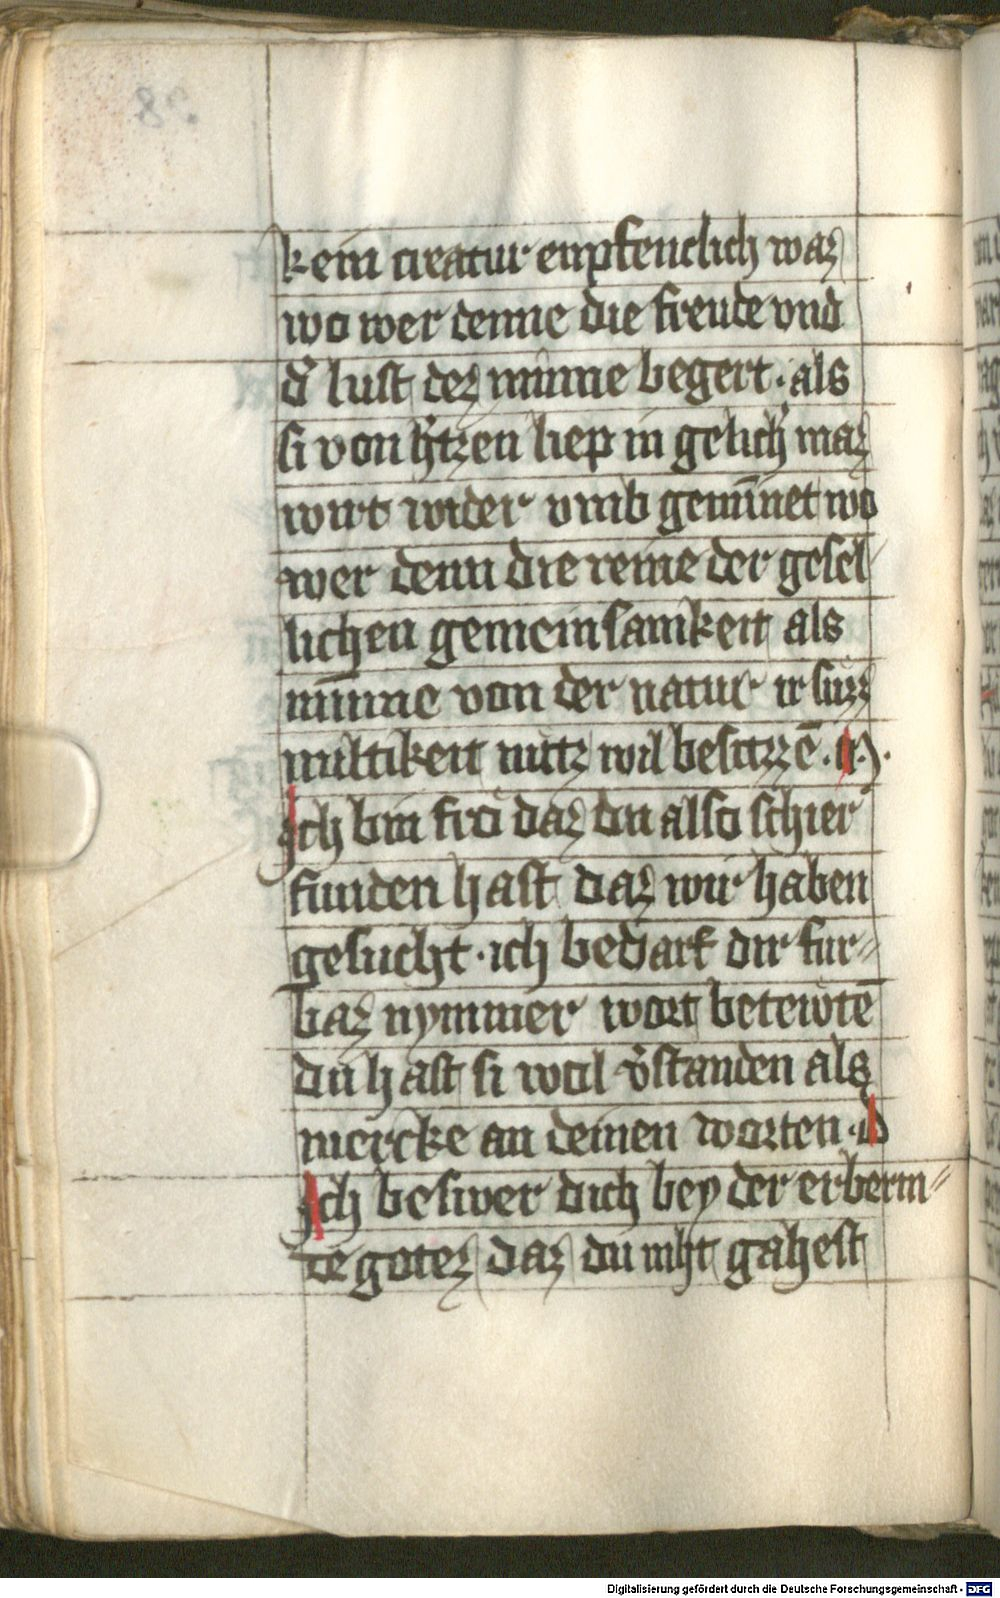 kein creatur enpfenclich waz
wo wer denne die freude vnd
d͛ lust dez minne begert · als
si von h͛tzen liep in gelich͛ maz
wirt wider vmb geminnet wo
wer denn die reine der gesel-
lichen gemeinsamkeit als
minne von der natur ir suzz
miltikeit nutz wil besitzzē ·
Ich bin fro daz du also schier
funden hast daz wir haben
gesucht · ich bedarf dir fur=
baz nymmer wort betewtē
du hast si wol v͛standen als
mercke an deinen worten · D
Ich beswer dich bey der erberm=
de gotez daz du niht gahest
Digitalisierung gefördert durch die Deutsche Forschungsgemeinschaft - DFG